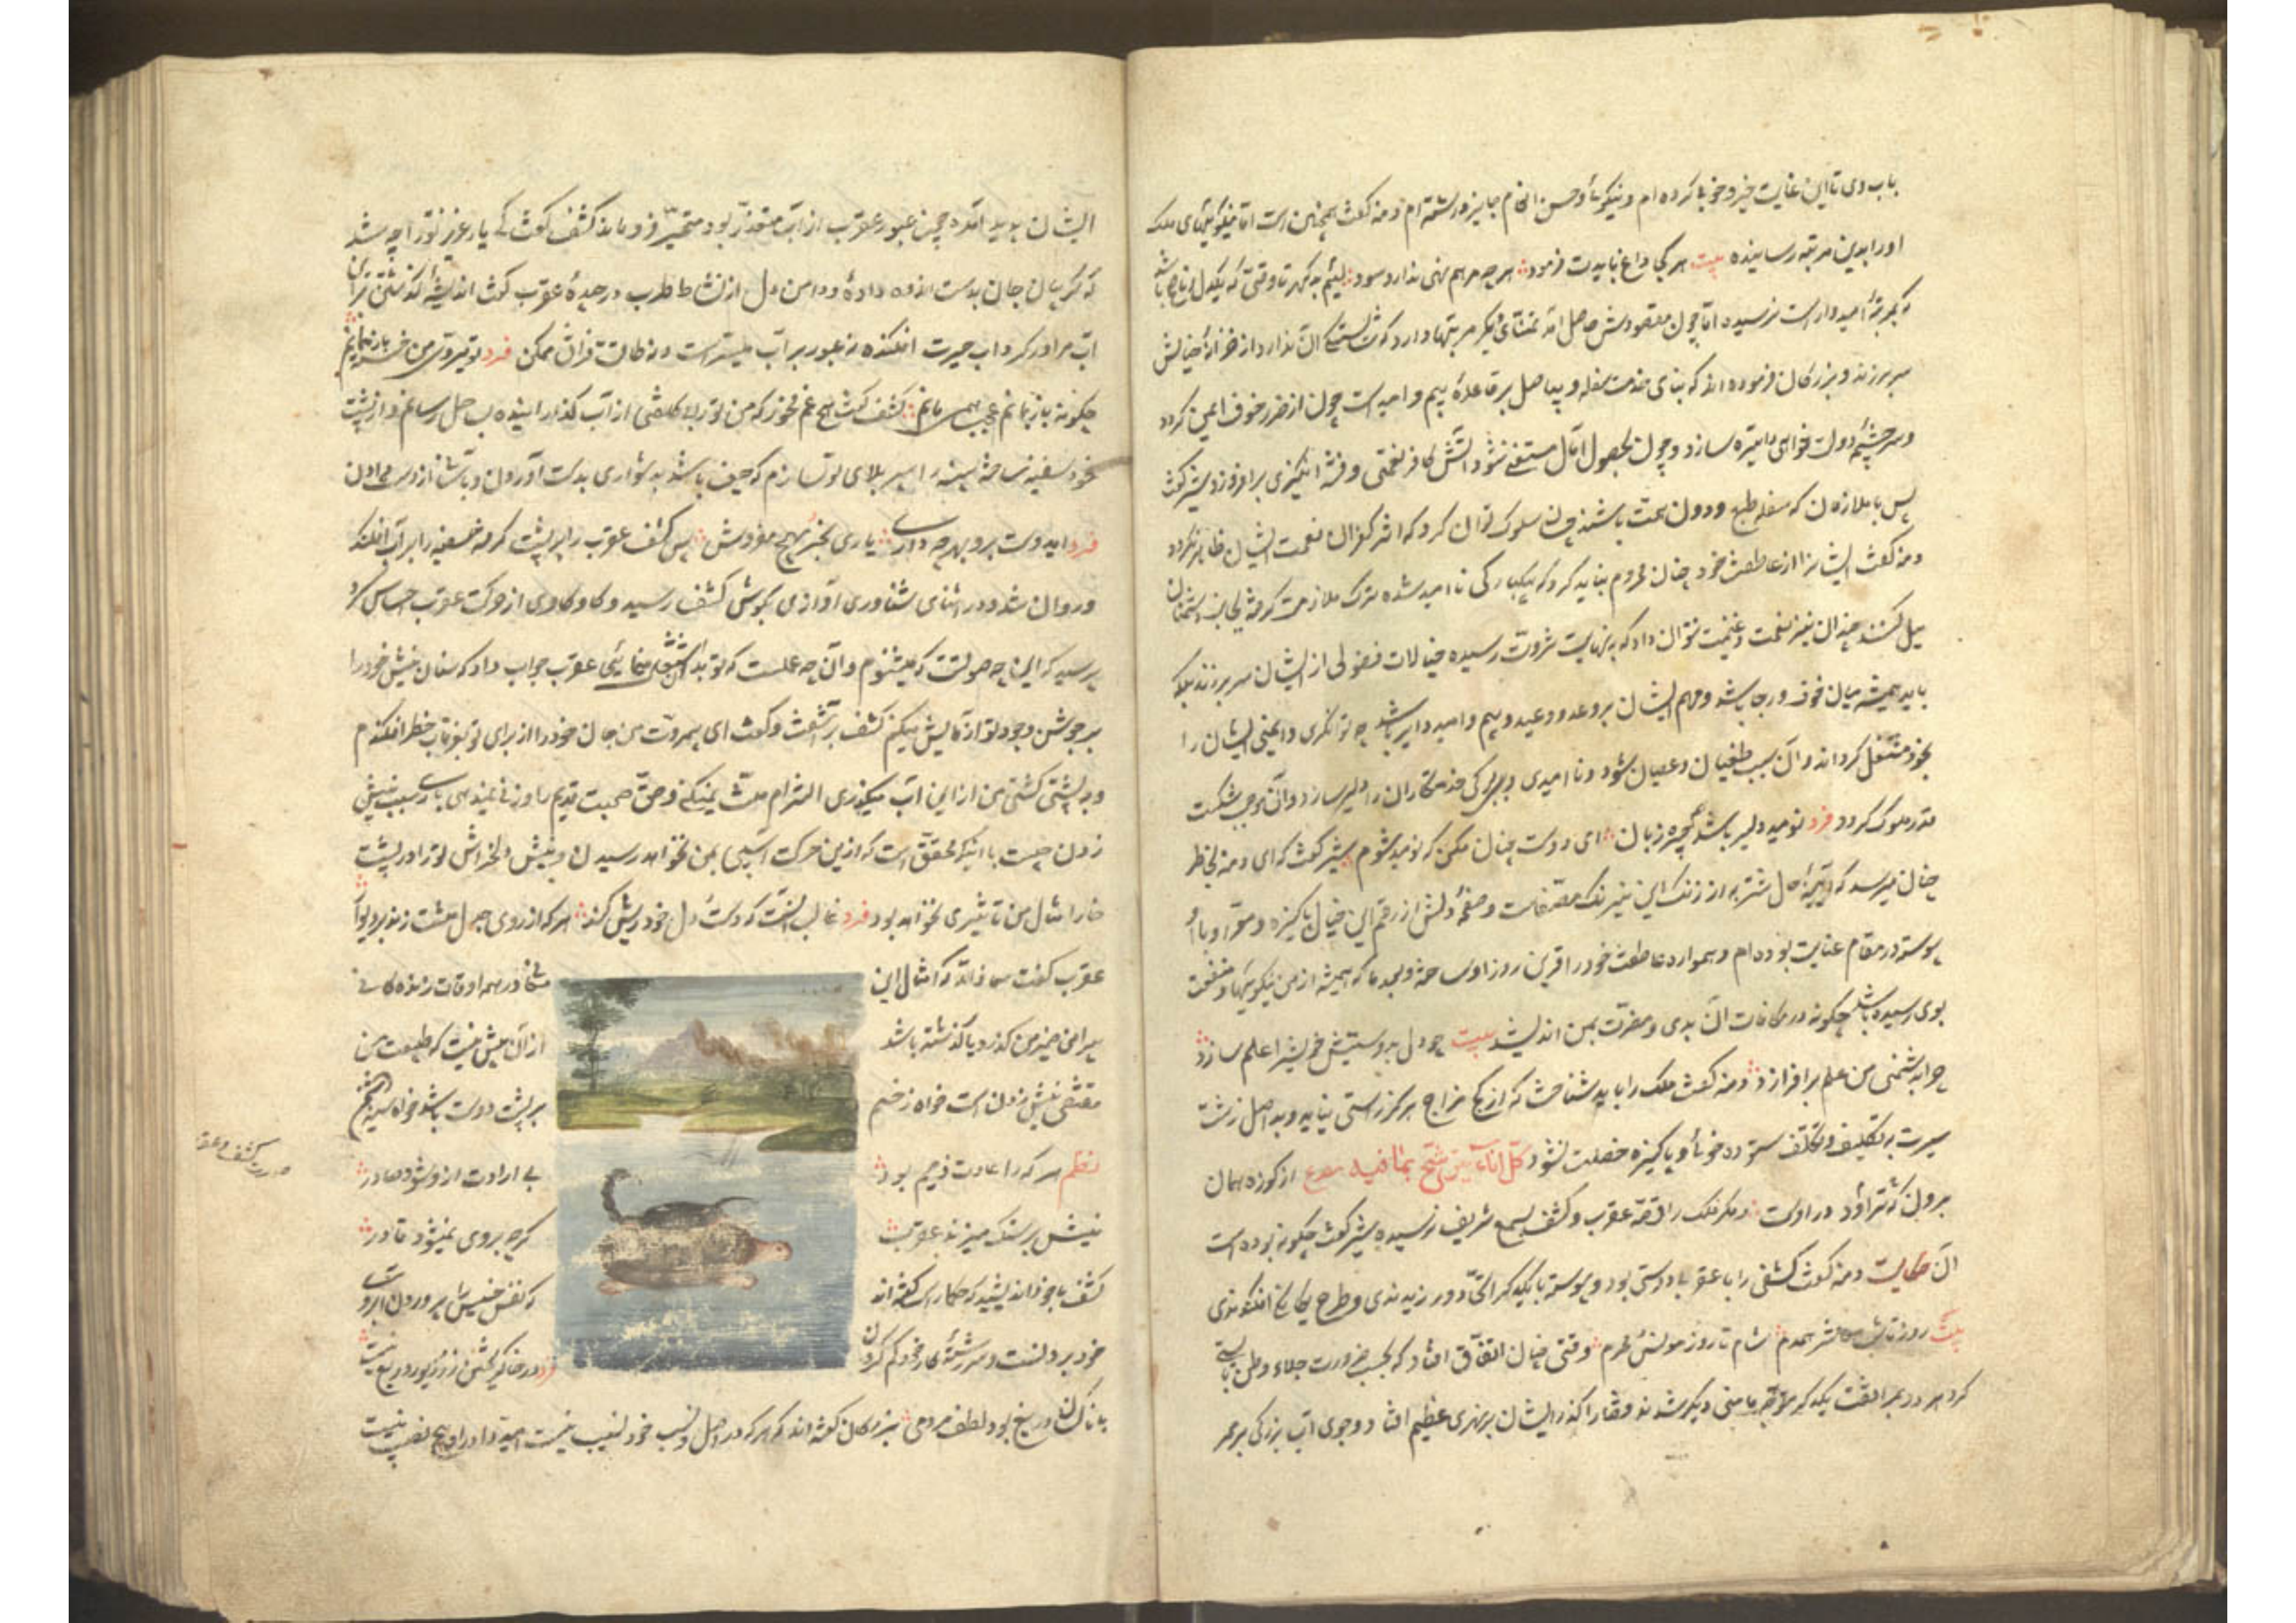 باب وی تا این غایت خیر و خوبی کرده ام و نیکویی و حسن انعام جایز داشته ام دمنه گفت همچنین است اما نیکوئیهای ملک
او را بدین مرتبه رسانیده بیت هر کجا داغ بایدت فرمود هر چه مرهم نهی ندارد سود لئیم بد گهر تا وقتی که یکدل و ناصح باشد
که بمرتبهٔ امیدوار است نرسیده اما چون مقصودش حاصل آمد تمنای دیگر مرتبها دارد که شایستگی آن ندارد از خزانهٔ خیالش
سر برزند و بزرگان فرموده اند که بنای خدمت سفله و بد اصل بر قاعدهٔ بیم و امید است چون از ضرر خوف ایمن گردد
و سرچشمهٔ دولتخواهی را تیره سازد و چون بحصول آمال مستغنی شود آتش کافر نعمتی و فتنه انگیزی برافروزد شیر گفت
پس با ملازمان که سفله طبع و دون همت باشند چه سان سلوک توان کرد که اثر کفران نعمت ایشان ظاهر نگردد
دمنه گفت ایشانرا از عاطفت خود چنان محروم نباید کرد که یکبارگی نا امید شده ترک ملازمت گرفته بجانب دشمنان
میل کنند و چندان نیز نعمت و غنیمت نتوان داد که بنهایت ثروت رسیده خیالات فضولی از ایشان سر برزند بلکه
باید همیشه میان خوف و رجا باشد و مهم ایشان بر وعد و وعید و بیم و امید دایر باشد چه توانگری و ایمنی ایشان را
بخود مشتغل گرداند و آن سبب طغیان و عصیان شود و نا امیدی و بیبرگی خدمتکاران را دلیر سازد و آن موجب شکست
قدر ملوک گردد فرد نومید دلیر باشد و چیره زبان ای دوست چنان مکن که نومید شوم شیر گفت که ای دمنه بخاطر
چنان میرسد که آیینهٔ دل شتربه از زنگ این نیرنگ مصفاست و صفحهٔ دلش از رقم این خیال پاکیزه و من او را
پیوسته در مقام عنایت بوده ام و همواره عاطفت خود را قرین روز او ساخته و بعد ما که همیشه از من نیکوئیها و منفعت
بوی رسیده باشد چگونه در مکافات آن بدی و مضرت بمن اندیشد بیت چو دل بدوستیش خویش را علم سازد
چرا بدشمنی من علم برافرازد دمنه گفت ملک را باید شناخت که از کج مزاج هرگز راستی نیاید و بد اصل زشت
سیرت به تکلیف و تکلف ستوده خوی و پاکیزه خصلت نشود کل اناء یترشح بما فیه مصرع از کوزه همان
برون تراود که در اوست و مگر ملک را قصهٔ عقرب و کشف بسمع شریف نرسیده شیر گفت چگونه بوده است
آن حکایت دمنه گفت کشفی را با عقربی دوستی بود و پیوسته با یکدیگر دم اتحاد ورزیدندی و طرح یگانگی افکندندی
بیت روز تا شب معاشر همدم شام تا روز مونس محرم وقتی چنان اتفاق افتاد که بحسب ضرورت جلاء وطن بایستی
کرد هر دو بمرافقت یکدیگر متوجه مامنی دیگر شدند قضا را گذر ایشان بر نهری عظیم افتاد و جوی آب بزرگی بر ممر
ایشان پدید آمد چون عبور عقرب از آب متعذر بود متحیر فرو ماند کشف گفت که یار عزیز ترا چه شد
که گریبان جان بدست اندوه دادهٔ و دامن دل از نشاط و طرب در چیدهٔ عقرب گفت اندیشهٔ گذشتن برین
آب مرا در گرداب حیرت افکنده نه عبور بر آب میسر است و نه طاقت فراق ممکن فرد تو میروی و من خسته باز میمانم
چگونه باز بمانم عجب همی مانم کشف گفت هیچ غم مخور که من ترا بی کلفتی از آب گذرانیده بساحل رسانم و از پشت
خود سفینه ساخته سینه را سپر بلای تو سازم که حیف باشد بدشواری یاری بدست آوردن و بآسانی از دست دادن
فرد ای دوست برو بهر چه داری یاری بخر بهیچ مفروش پس کشف عقرب را بر پشت گرفته سفینه را بر آب افکند
و روان شد و در اثنای شناوری آوازی بگوش کشف رسید و کاو کاوی از حرکت عقرب احساس کرد
پرسید که این چه صوتست که میشنوم و آن چه عملست که تو بدان اشتغال مینمائی عقرب جواب داد که سنان نیش خود را
بر جوشن وجود تو آزمایش میکنم کشف برآشفت و گفت ای بیمروت من جان خود را از برای تو بغرقاب خطر افکندم
و به پشتی کشتی من از این آب میگذری التزام منت نمیکنی و حق صحبت قدیم را وزنی نمینهی باری سبب نیش
زدن چیست با آنکه محقق است که ازین حرکت آسیبی بمن نخواهد رسیدن و نیش دلخراش ترا در پشت
خارا مثال من تاثیری نخواهد بود فرد غالب آنست که دست دل خود ریش کند هر که از روی جدل مشت زند بر دیوار
عقرب گفت معاذ الله که امثال این معانی در همه اوقات زندگانی
پیرامن ضمیر من گذرد یا گذشته باشد از آن بیش نیست که طبیعت من
مقتضی نیش زدن است خواه زخم بر پشت دوست باشد خواه بر سینه دشمن
نظم هر که را عادت ذمیم بود بی ارادت ازو شود صادر
نیش بر سنگ میزند عقرب گرچه بر وی نمیشود قادر
کشف با خود اندیشید که حکما راست گفته اند که نفس خسیس را پروردن آبروی
خود بردنست و سر رشتهٔ کار خود گم کردن فرد در خاک ریختن زر و زیور دریغ نیست
با ناکسان دریغ بود لطف مردمی بزرگان گفته اند که هر که در اصل و نسب خود نصیب نیست امید را در او هیچ نصیب نیست
صورت کشف و عقرب